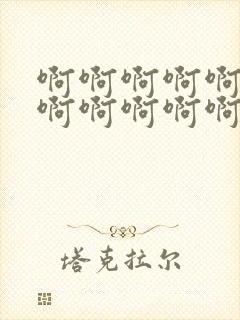 啊啊啊啊啊
啊啊啊啊啊
塔克拉尔